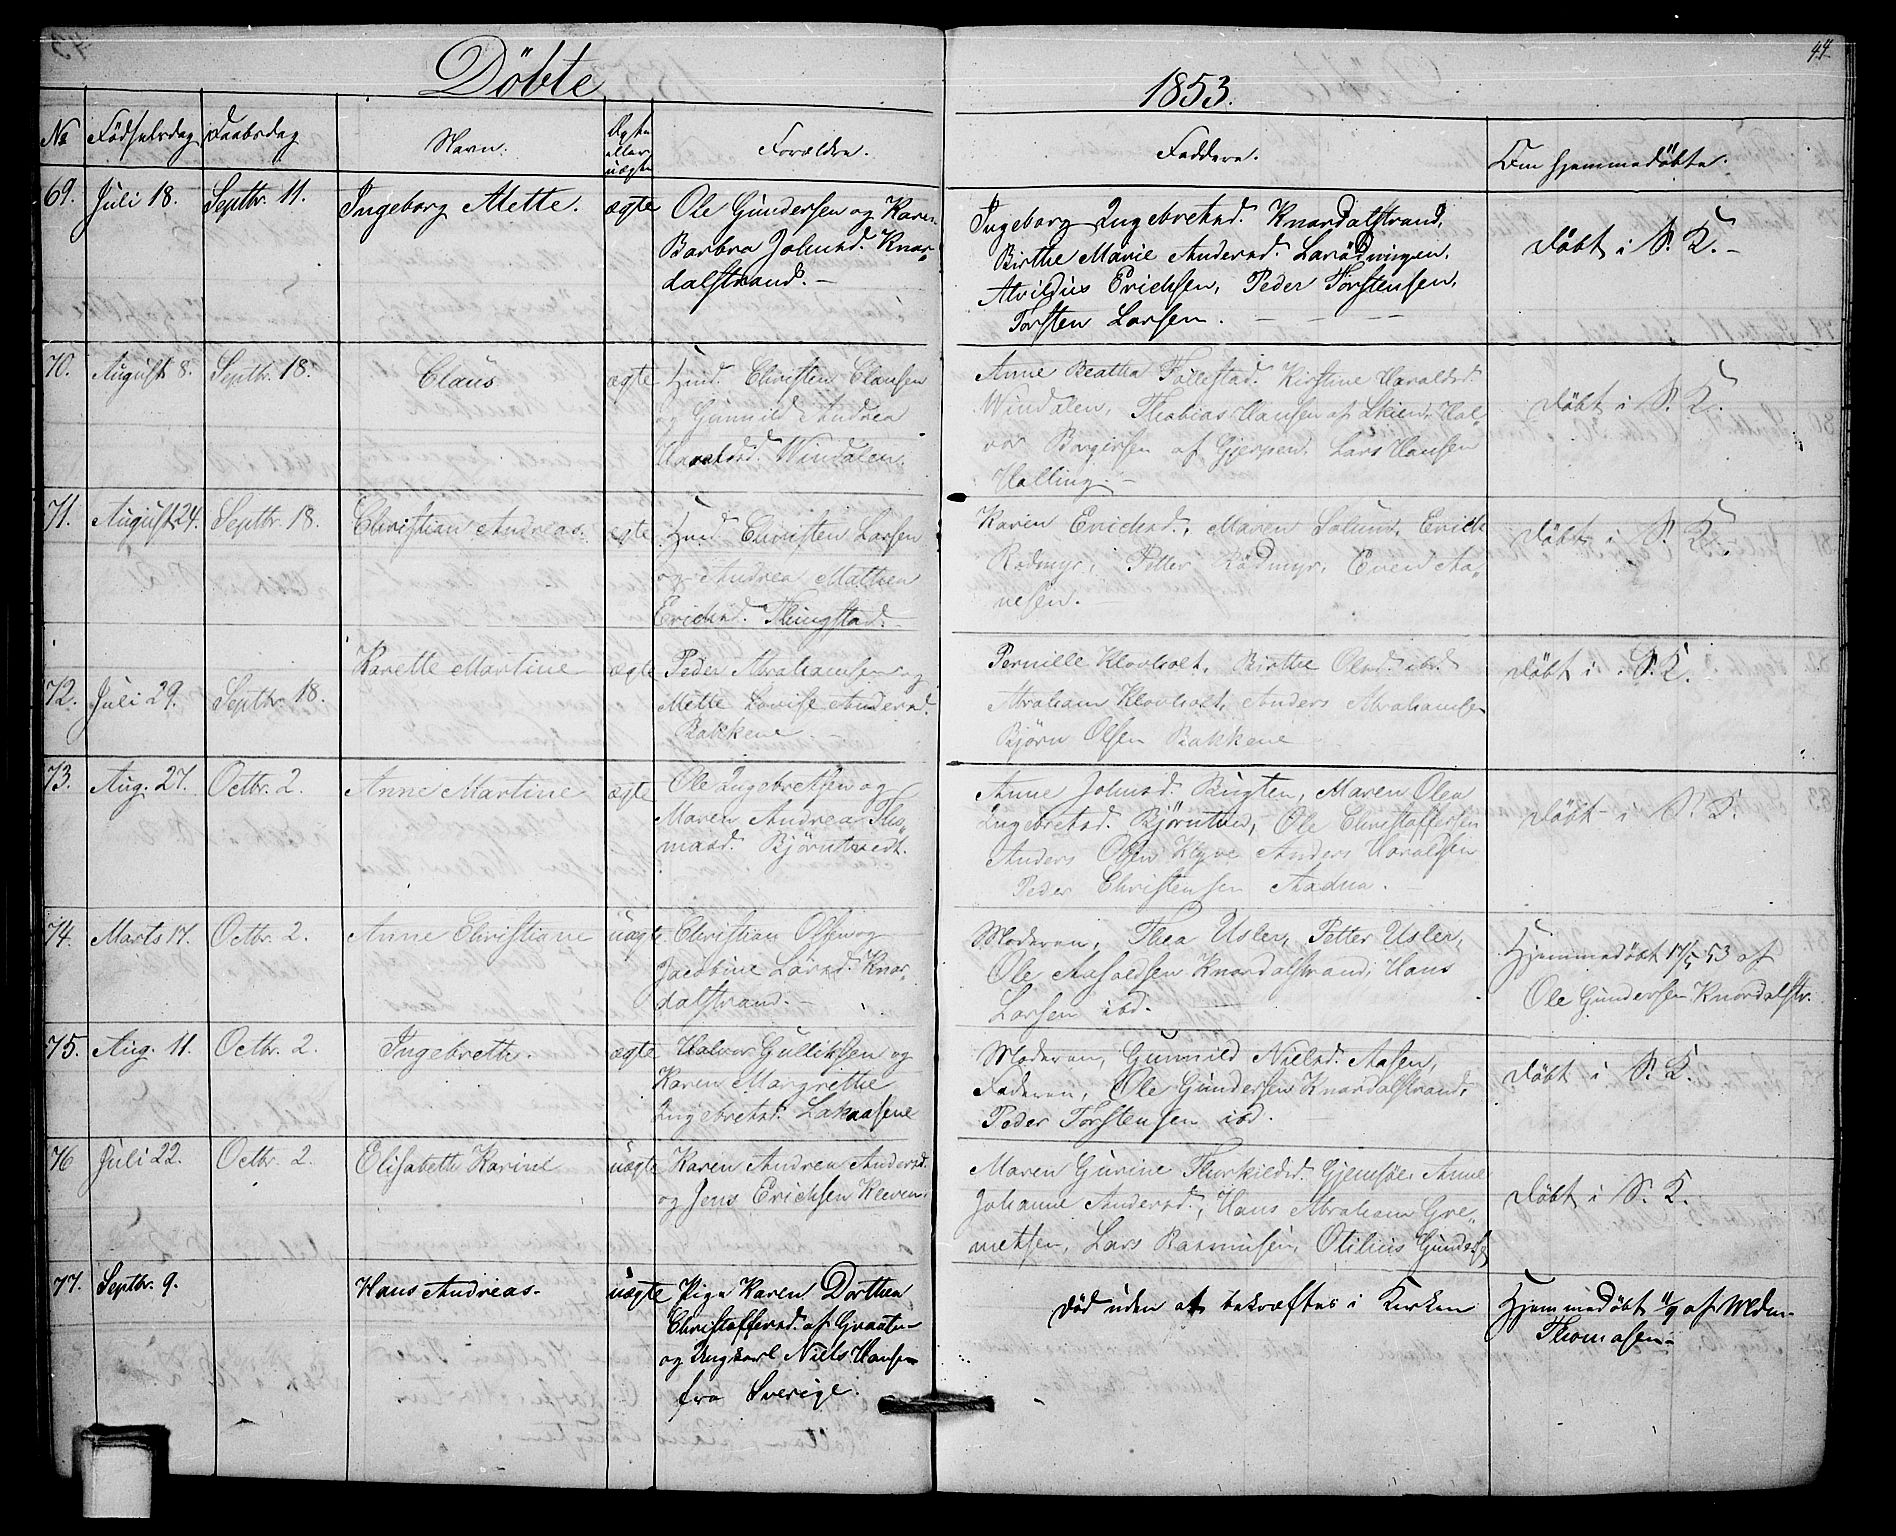 44
Döbte
1853.
No Födselsdag Daabsdag Navn. Ægte eller uægte Forældre. Faddere. Om hjemmedöbte.
69. Juli 18. Septbr. 11. Ingeborg Mette. ægte
Ole Gundersen og Karen
Barbra Johnsd. Knar-
dalstrand.-
Ingeborg Ingebretsd. Knardalstrand,
Birthe Marie Andersd. Larödningen,
Alvildus Erichsen, Peder Torstensen,
Torsten Larsen.
Döbt i S. K.-
70. August 8. Septbr. 18. Claus ægte
Hmd. Christen Clausen
og Gunnild Andrea
Haraldsd. Windalen.
Anne Beatha Follestad. Kirstine Haraldsd.
Windalen, Thobias Hansen af Skien, Hal-
vor Borgersen af Gjerpen, Lars Hansen
Halling.-
Döbt i S. K.
71. August 24. Septbr. 18. Christian Andreas. ægte
Hmd. Christen Larsen
og Andrea Mathea
Erichsd. Klingstad.
Karen Erichsd., Maren Solum, Erich
Rödmyr, Petter Rödmyr, Even Aa-
nesen.-
Döbt i S. K.
72. Juli 29. Septbr. 18. Karette Martine ægte
Peder Abrahamsen og
Mette Lovise Andersd.
Bakkene
Pernille Klovholt, Birthe Olsd. ibd.
Abraham Klovholt, Anders Abrahamsen
Bjørn Olsen Bakkene
Döbt i S. K.
73. Aug. 27. Octbr. 2. Anne Martine ægte
Ole Ingebretsen og
Maren Andrea Tho-
masd. Björntvedt.
Anne Johnsd. Bugten, Maren Olea
Ingebretsd. Björntvedt, Ole Christoffersen
Anders Olsen Klyve Anders Haraldsen
Peder Christensen Aadna.
Döbt i S. K.
74. Marts 17. Octbr. 2. Anne Christiane uægte
Christian Olsen og
Jacobine Larsd. Knar-
dalstrand.-
Moderen, Thea Usler, Petter Usler,
Ole Aasoldsen Knardalstrand, Hans
Larsen ibd.
Hjemmedöbt 17/5 53 af
Ole Gundersen Knardalstr.
75. Aug. 11. Octbr. 2. Ingebrethe. ægte
Halvor Gulliksen og
Karen Margrethe
Ingebretsd. Lakaasene
Moderen, Gunnild Nielsd. Aasen,
Faderen, Ole Gundersen Knardalstrand,
Peder Torstensen ibd.
Döbt i S. K.
76 Juli 22. Octbr. 2. Elisabeth Karine uægte
Karen Andrea Andersd.
og Jens Erichsen Kleven.
Maren Gurine Thorkildsd. Gjemsöe. Anne
Johanne Andersd., Hans Abraham Gre-
metsen, Lars Rasmusen, Otilius Gundersen
Döbt i S. K.
77. Septbr. 9. Hans Andreas. uægte
Pige Karen Dorthea
Christoffersd. af Graaten
og Ungkarl Niels Hansen
fra Sverige.
död uden at bekræftes i Kirken
Hjemmedöbt 11/9 af Mdm.
Thomasen.